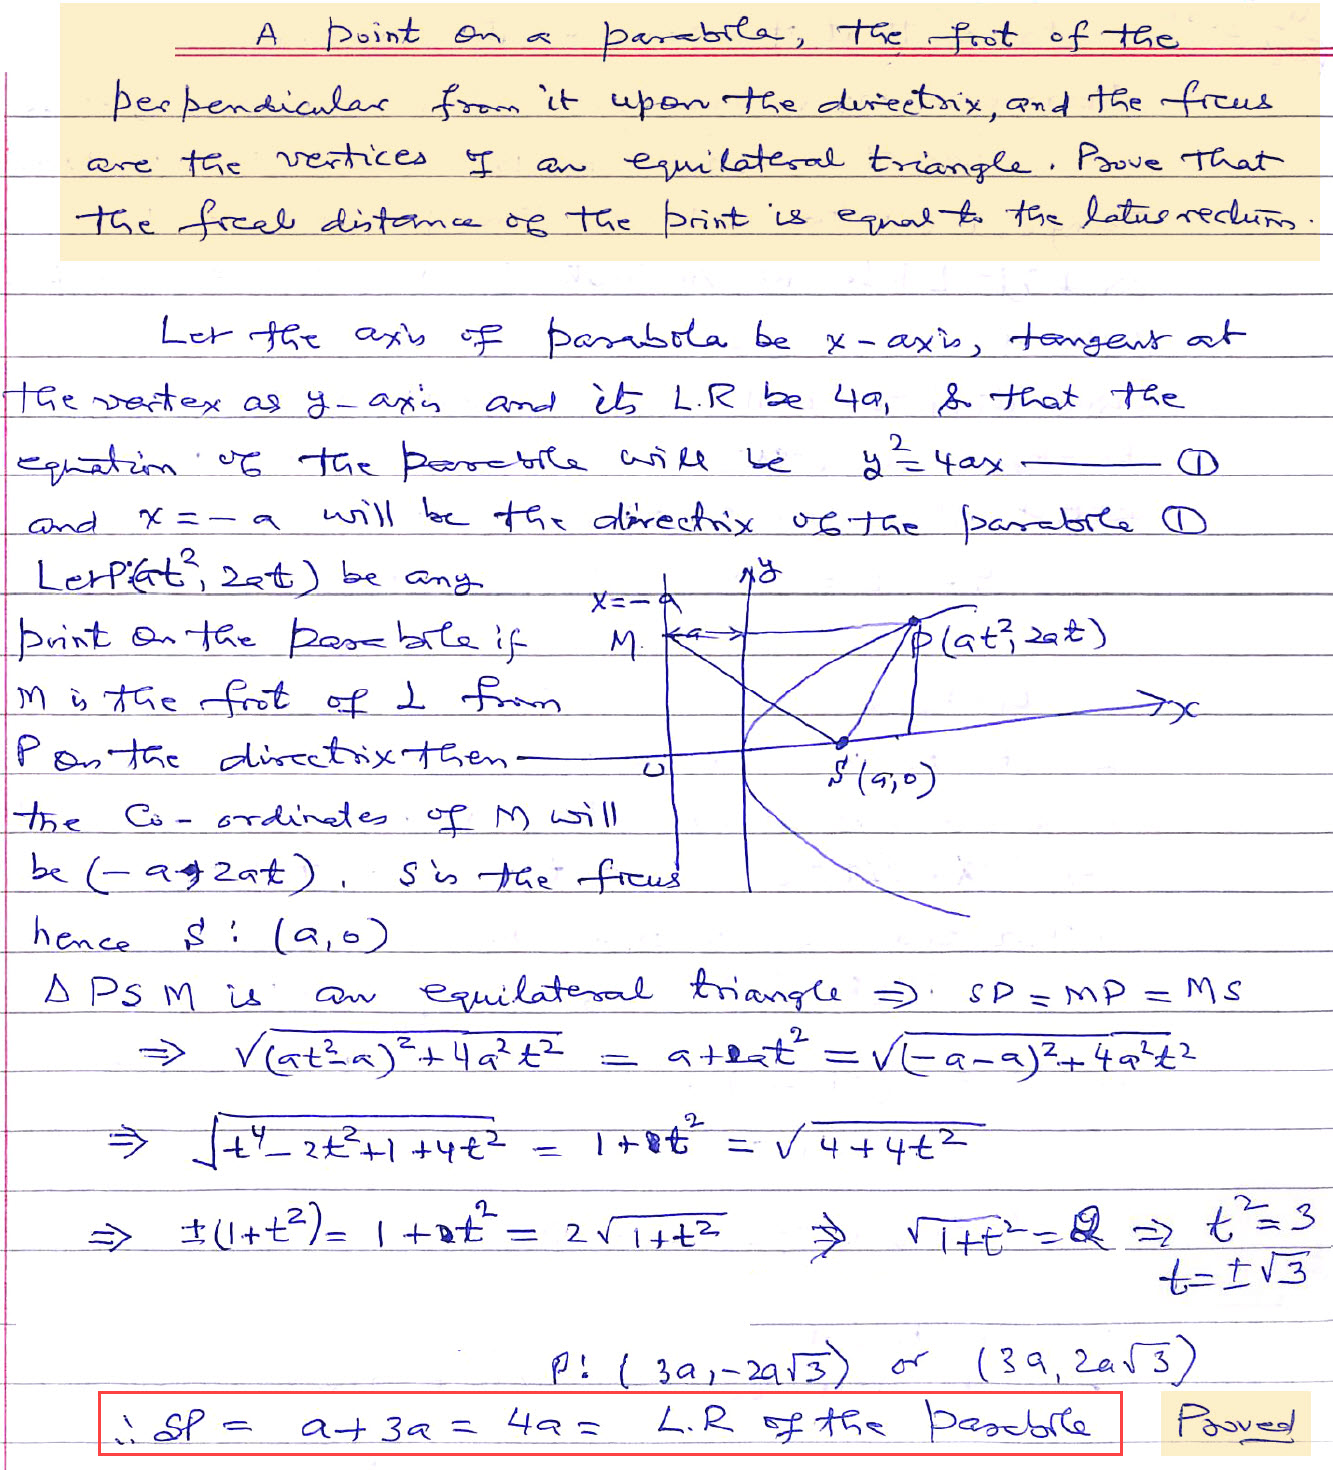 A point on a parabola, the foot of the
perpendicular from it upon the directrix, and the focus
are the vertices of an equilateral triangle. Prove that
the focal distance of the point is equal to the latus rectum.
Let the axis of parabola be x-axis, tangent at
the vertex as y-axis and its L.R be 4a, So that the
equation of the parabola will be y² = 4ax ——— ①
and x = -a will be the directrix of the parabola ①
Let P:(at², 2at) be any
point on the parabola if
M is the foot of ⊥ from
P on the directrix then
the Co-ordinates of M will
be (-a, 2at). S is the focus
hence S : (a,0)
x=-a
y
M
a
P(at², 2at)
x
S(a,0)
Δ PSM is an equilateral triangle ⇒ SP = MP = MS
⇒ √(at²-a)²+4a²t² = a+at² = √(-a-a)²+4a²t²
⇒ √t⁴-2t²+1+4t² = 1+t² = √4+4t²
⇒ ±(1+t²) = 1+t² = 2√1+t² ⇒ √1+t² = 2 ⇒ t² = 3
t = ±√3
P: (3a, -2a√3) or (3a, 2a√3)
∴ SP = a+3a = 4a = L.R of the parabola Proved